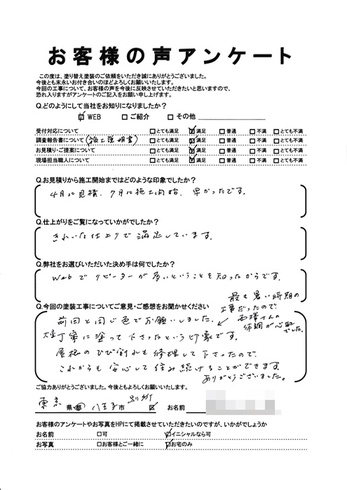 お客様の声アンケート
この度は、塗り替え塗装のご依頼をいただき誠にありがとうございました。
今後とも末永いお付き合いのほどよろしくお願いいたします。
今回の工事について、お客様の声を今後に反映させていただきたいと思いますので、
恐れ入りますがアンケートのご記入をお願い申し上げます。
Q.どのようにして当社をお知りになりましたか?
☑ WEB □ ご紹介 □ その他
受付対応について □とても満足 ☑満足 □普通 □不満 □とても不満
現場担当職人について □とても満足 ☑満足 □普通 □不満 □とても不満
Q.お見積りから施工開始まではどのような印象でしたか?
4月に見積、7月に施工開始、早かったです。
Q.仕上がりをご覧になっていかがでしたか?
きれいな仕上りで満足しています。
Q.弊社をお選びいただいた決め手は何でしたか?
Webでリピーターが多いということを知ったからです。
Q.今回の塗装工事についてご意見・ご感想をお聞かせください
最も暑い時期の
工事だったので、
前回と同じ色でお願いしました。
丁寧に塗って下さったという印象です。
屋根のひび割れも修理して下さったので、
これからも安心して住み続けることができます
ありがとうございました。
ご協力ありがとうございました。今後ともよろしくお願いいたします。
東京 県・都 八王子市 お名前
お客様のアンケートやお写真をHPにて掲載させていただきたいのですが、いかがでしょうか
お名前 □可 ☑イニシャルなら可
お写真 □お客様とご一緒に ☑お宅のみ